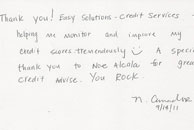 Thank you! Easy Solutions - Credit Services
helping me monitor and improve my
credit scores tremendously A special
thank you to Noe Alcala for great
credit advise. You Rock.
N.
9/19/11